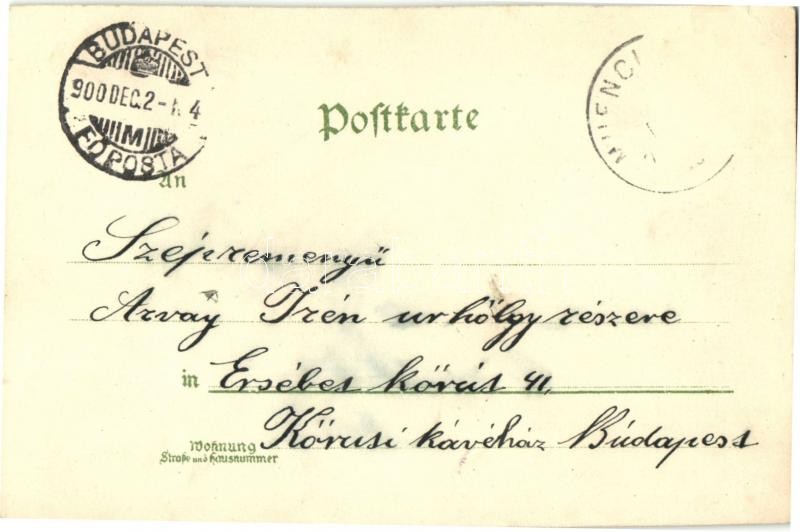 BUDAPEST
900 DEC. 2
M
FŐPOSTA
Postkarte
An
Szépremenyű
Arvay Irén urhölgy részere
in Ersébet körút 41,
Körusi kávéház Budapest
Wohnung
Straße und Hausnummer